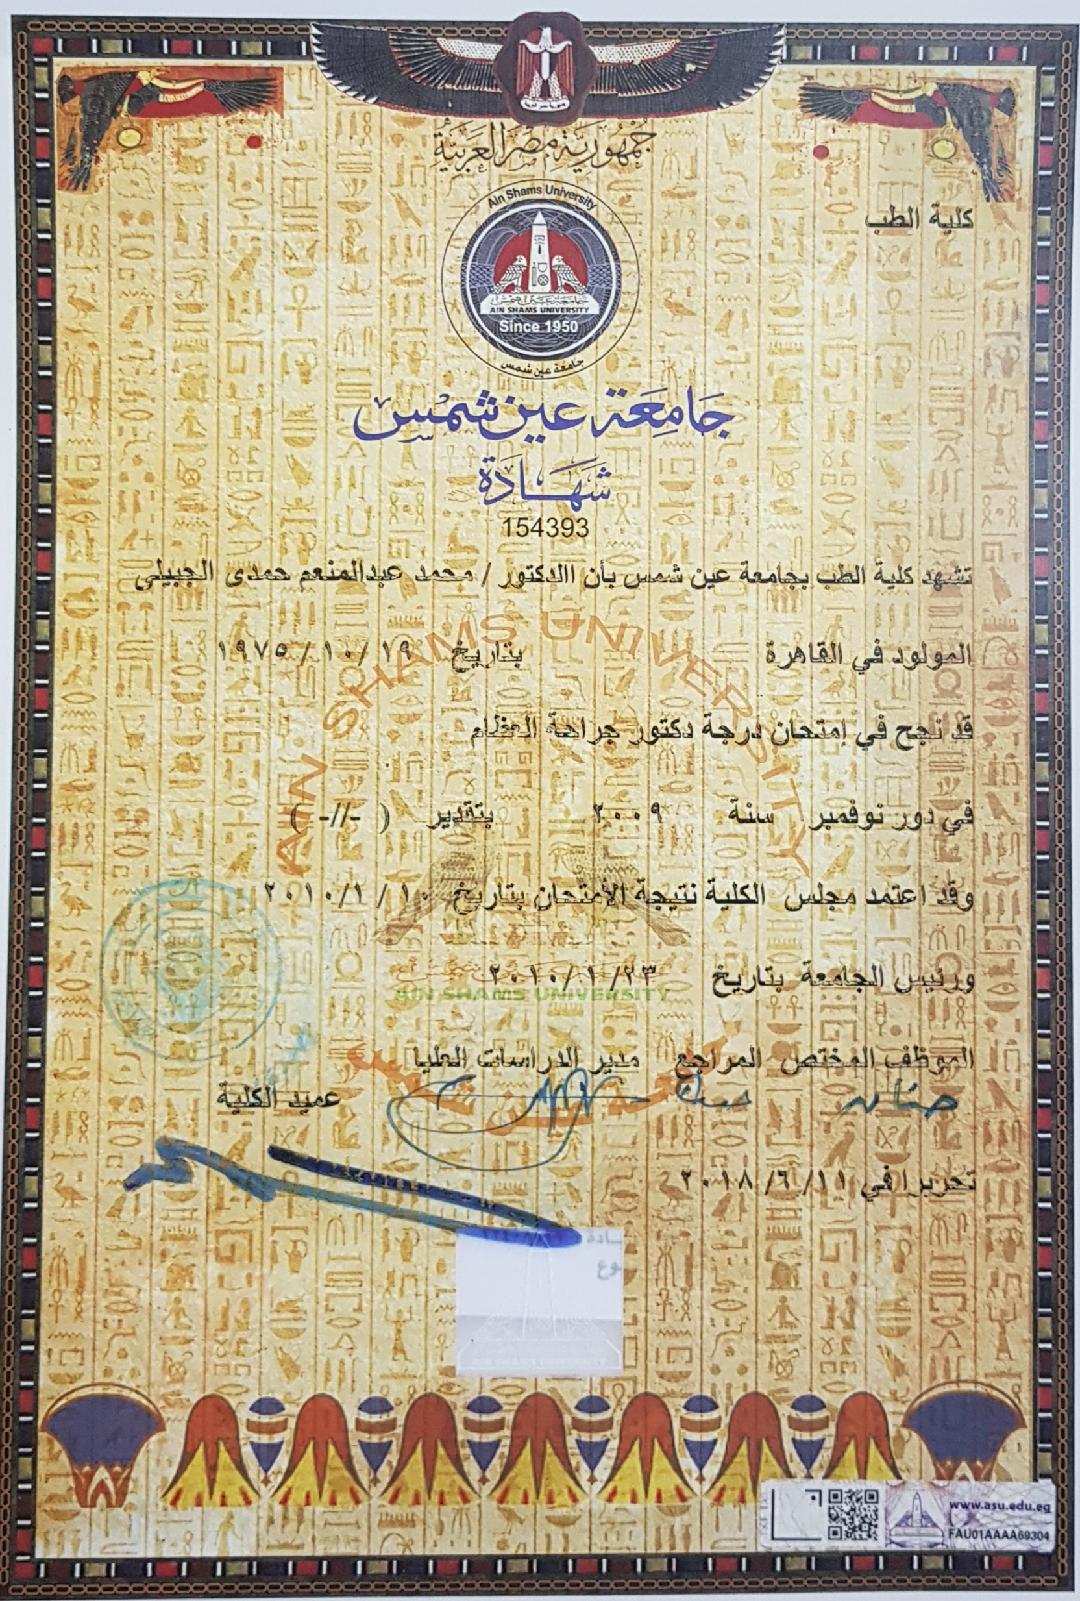 جمهورية مصر العربية
كلية الطب
Ain Shams University
جامعة عين شمس
AIN SHAMS UNIVERSITY
Since 1950
جامعة عين شمس
جامعة عين شمس
شهادة
154393
تشهد كلية الطب بجامعة عين شمس بأن االدكتور / محمد عبدالمنعم حمدى الجبيلى
المولود في القاهرة بتاريخ ١٩ /١٠ / ١٩٧٥
AIN SHAMS UNIVERSITY
قد نجح في إمتحان درجة دكتور جراحة العظام
في دور نوفمبر سنة ٢٠٠٩ بتقدير ( -//- )
وقد اعتمد مجلس الكلية نتيجة الأمتحان بتاريخ ١٠ /١/ ٢٠١٠
ورئيس الجامعة بتاريخ ٢٣/ ١ /٢٠١٠
AIN SHAMS UNIVERSITY
الموظف المختص المراجع مدير الدراسات العليا
عميد الكلية
تحريرا في ١١ /٦/ ٢٠١٨
AIN SHAMS UNIVERSITY
www.asu.edu.eg
FAU01AAAA69304